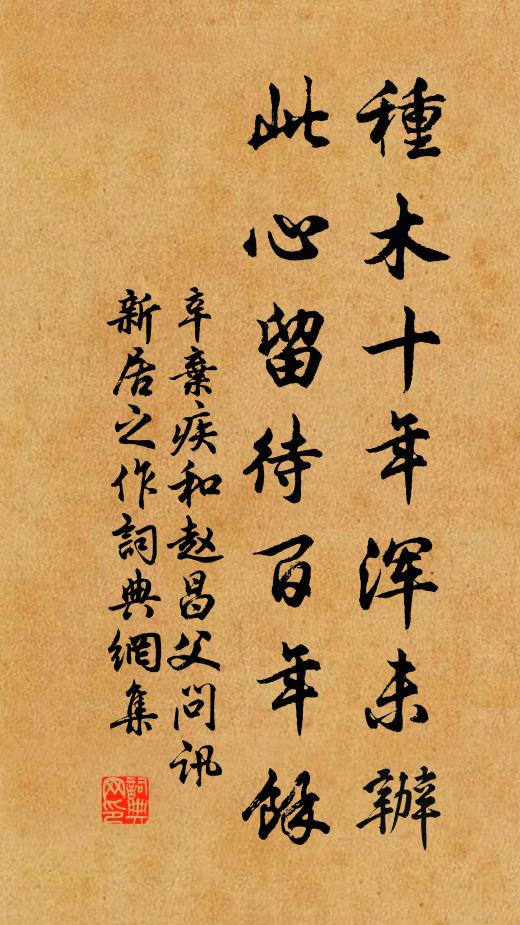 種木十年浑未辦
此心留待百年餘
辛棄疾和赵昌父問訊
新居之作詞典網集
詞典
网印